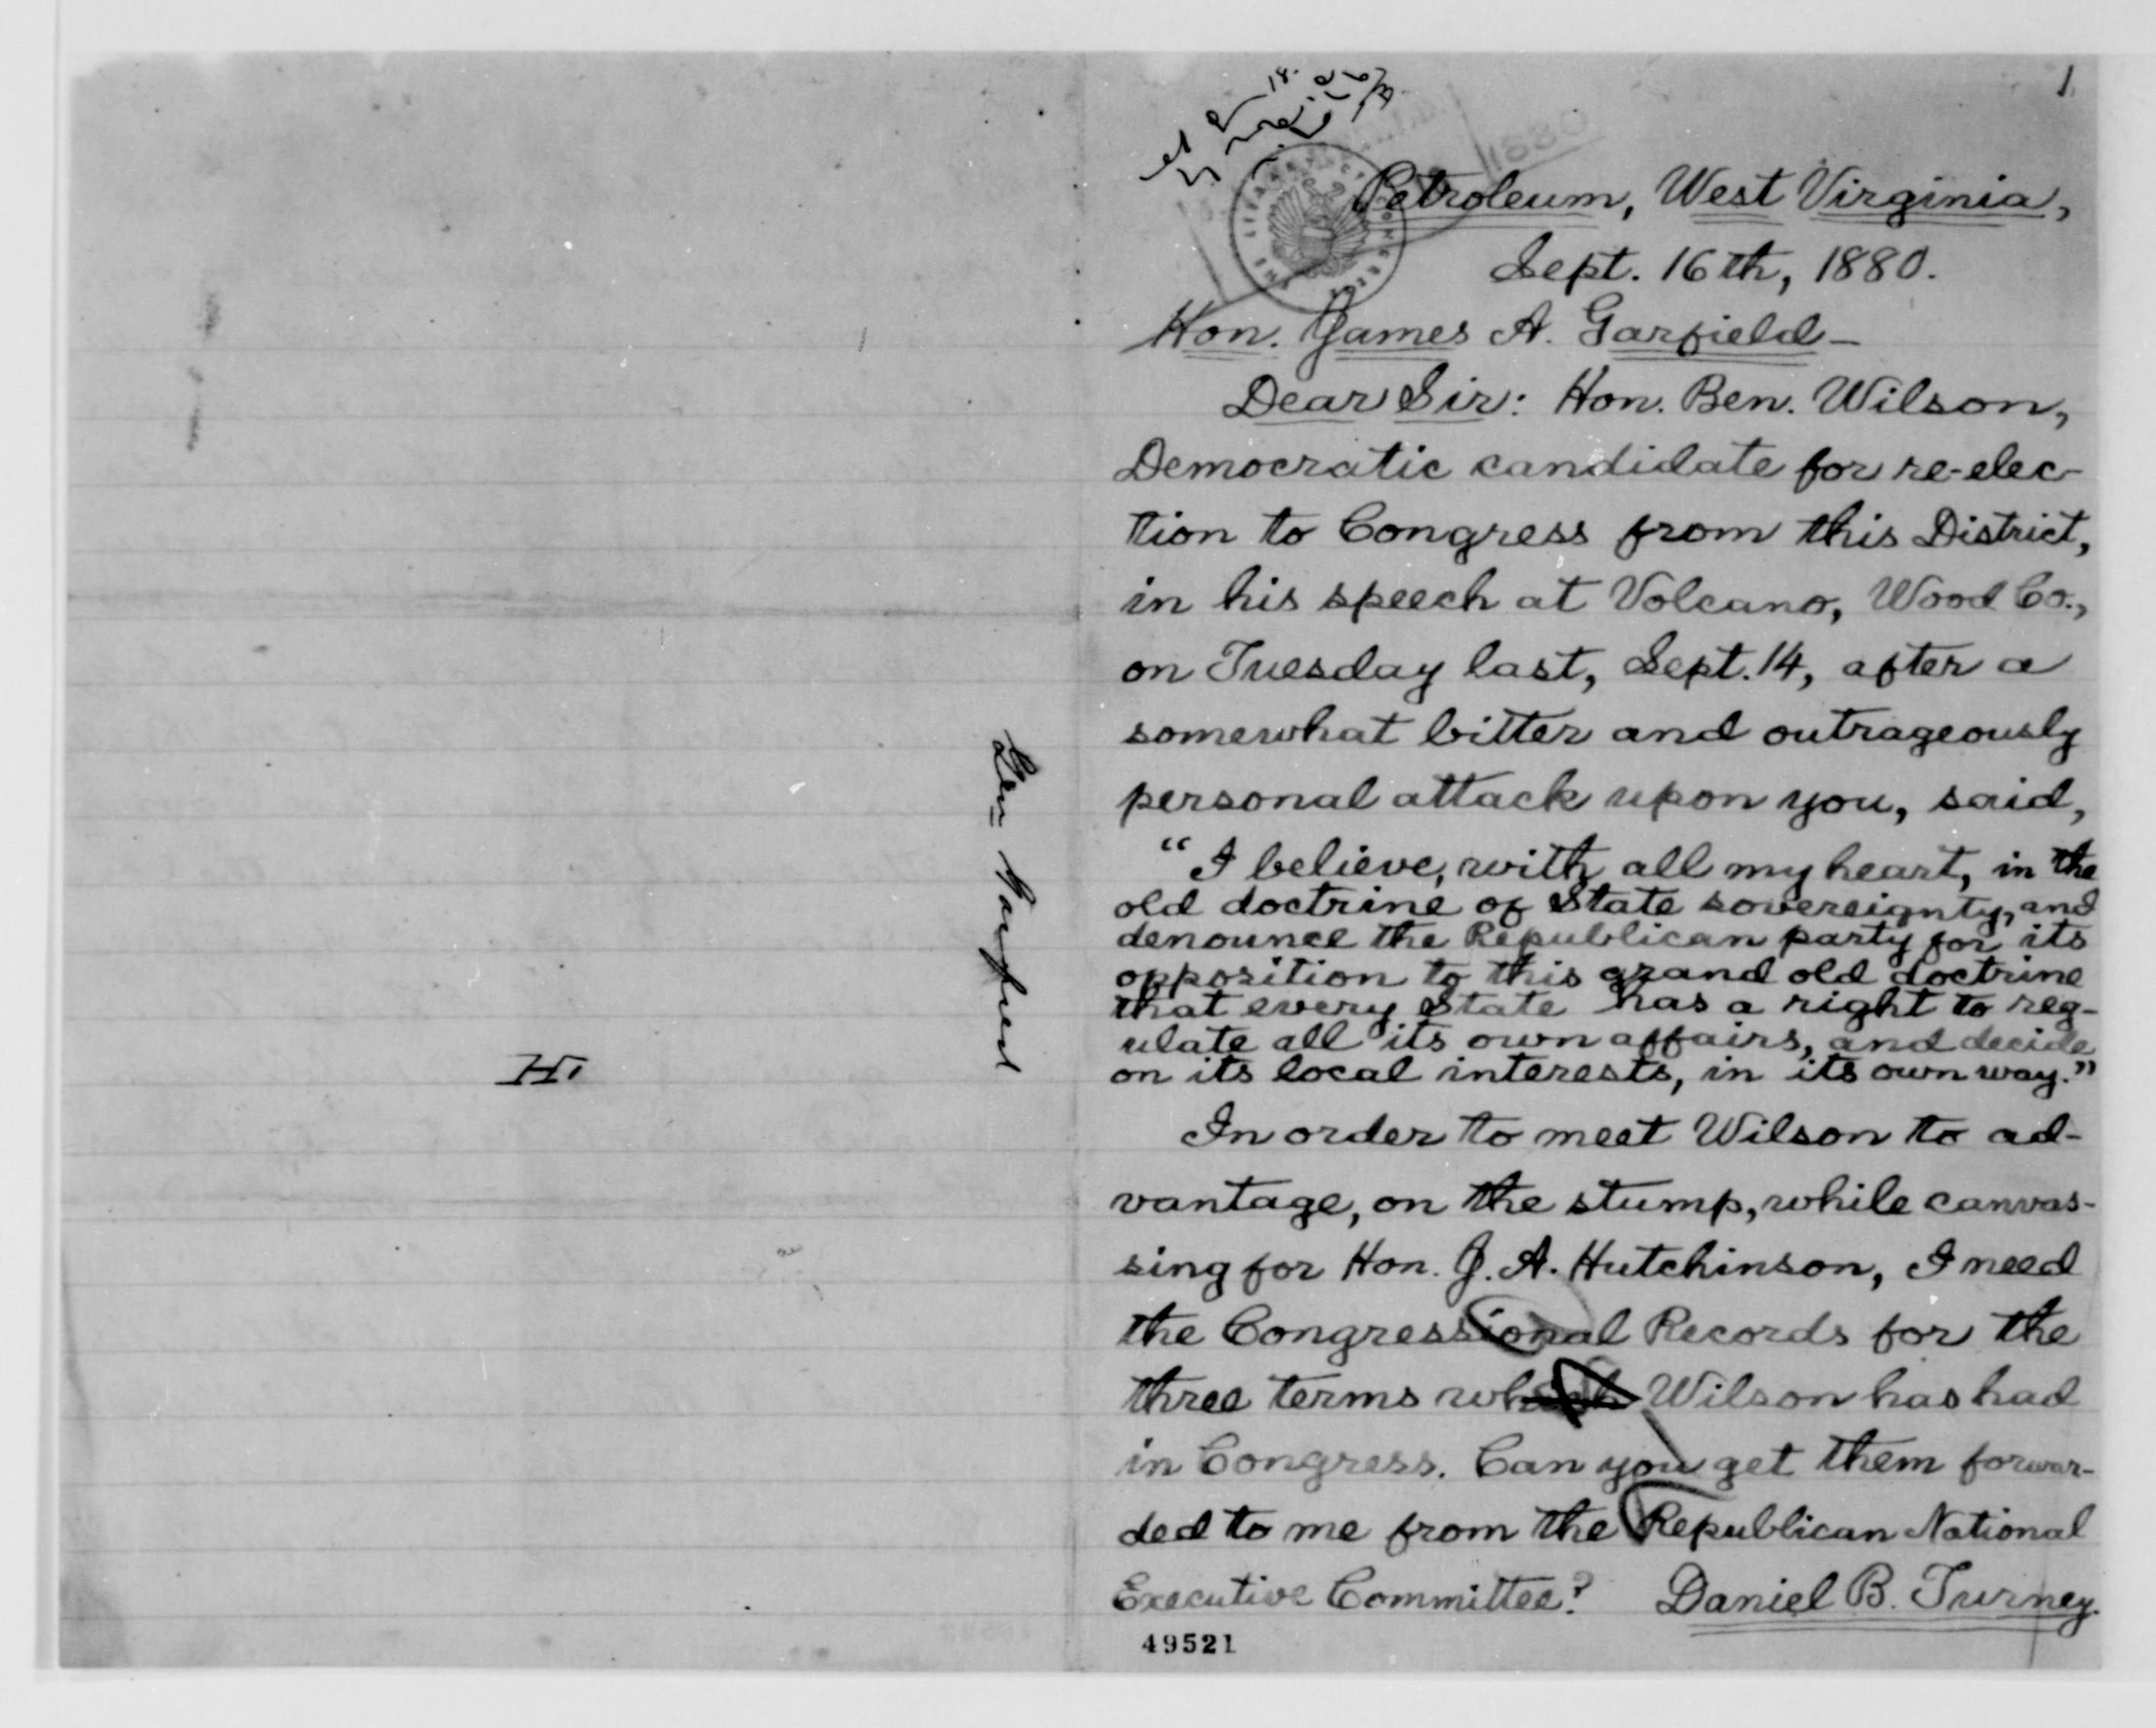 Gen Garfield
H
1
1880
Petroleum, West Virginia,
Sept. 16th, 1880.
Hon. James A. Garfield —
Dear Sir: Hon. Ben. Wilson,
Democratic candidate for re-elec-
tion to Congress from this District,
in his speech at Volcano, Wood Co.,
on Tuesday last, Sept. 14, after a
somewhat bitter and outrageously
personal attack upon you, said,
"I believe, with all my heart, in the
old doctrine of State sovereignty, and
denounce the Republican party for its
opposition to this grand old doctrine
that every State has a right to reg-
ulate all its own affairs, and decide
on its local interests, in its own way."
In order to meet Wilson to ad-
vantage, on the stump, while canvas-
sing for Hon. J. A. Hutchinson, I need
the Congressional Records for the
three terms which Wilson has had
in Congress. Can you get them forwar-
ded to me from the Republican National
Executive Committee? Daniel B. Turney.
49521